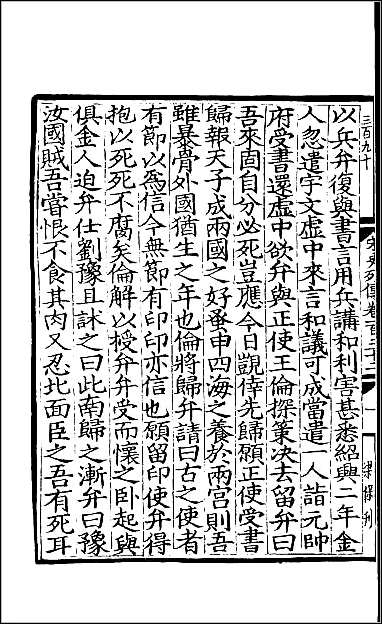 三百九十
宋史列傳卷一百三十二
以兵弁復與書言用兵講和利害甚悉紹興二年金
人忽遣宇文虛中來言和議可成當遣一人詣元帥
府受書還虛中欲弁與正使王倫探策決去留弁曰
吾來固自分必死豈應今日覬倖先歸願正使受書
歸報天子成兩國之好蚤申四海之養於兩宮則吾
雖暴骨外國猶生之年也倫將歸弁請曰古之使者
有節以爲信今無節有印印亦信也願留印使弁得
抱以死死不腐矣倫解以授弁弁受而懷之臥起與
俱金人迫弁仕劉豫且訹之曰此南歸之漸弁曰豫
汝國賊吾嘗恨不食其肉又忍北面臣之吾有死耳